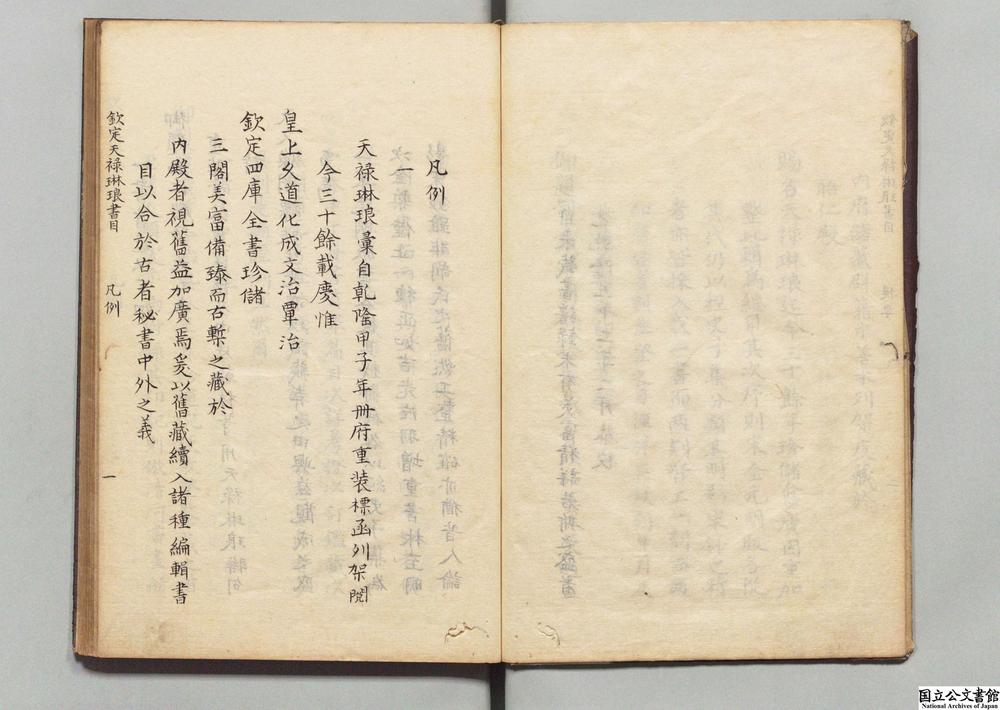 凡例
天禄琳琅彙自乾隆甲子年冊府重装標函列架閱
今三十餘載慶惟
皇上久道化成文治覃洽
欽定四庫全書珍儲
三閣美富備臻而古槧之藏於
内殿者視舊益加廣焉爰以舊藏續入諸種編輯書
目以合於古者秘書中外之義
欽定天禄琳琅書目 凡例 一
国立公文書館
National Archives of Japan